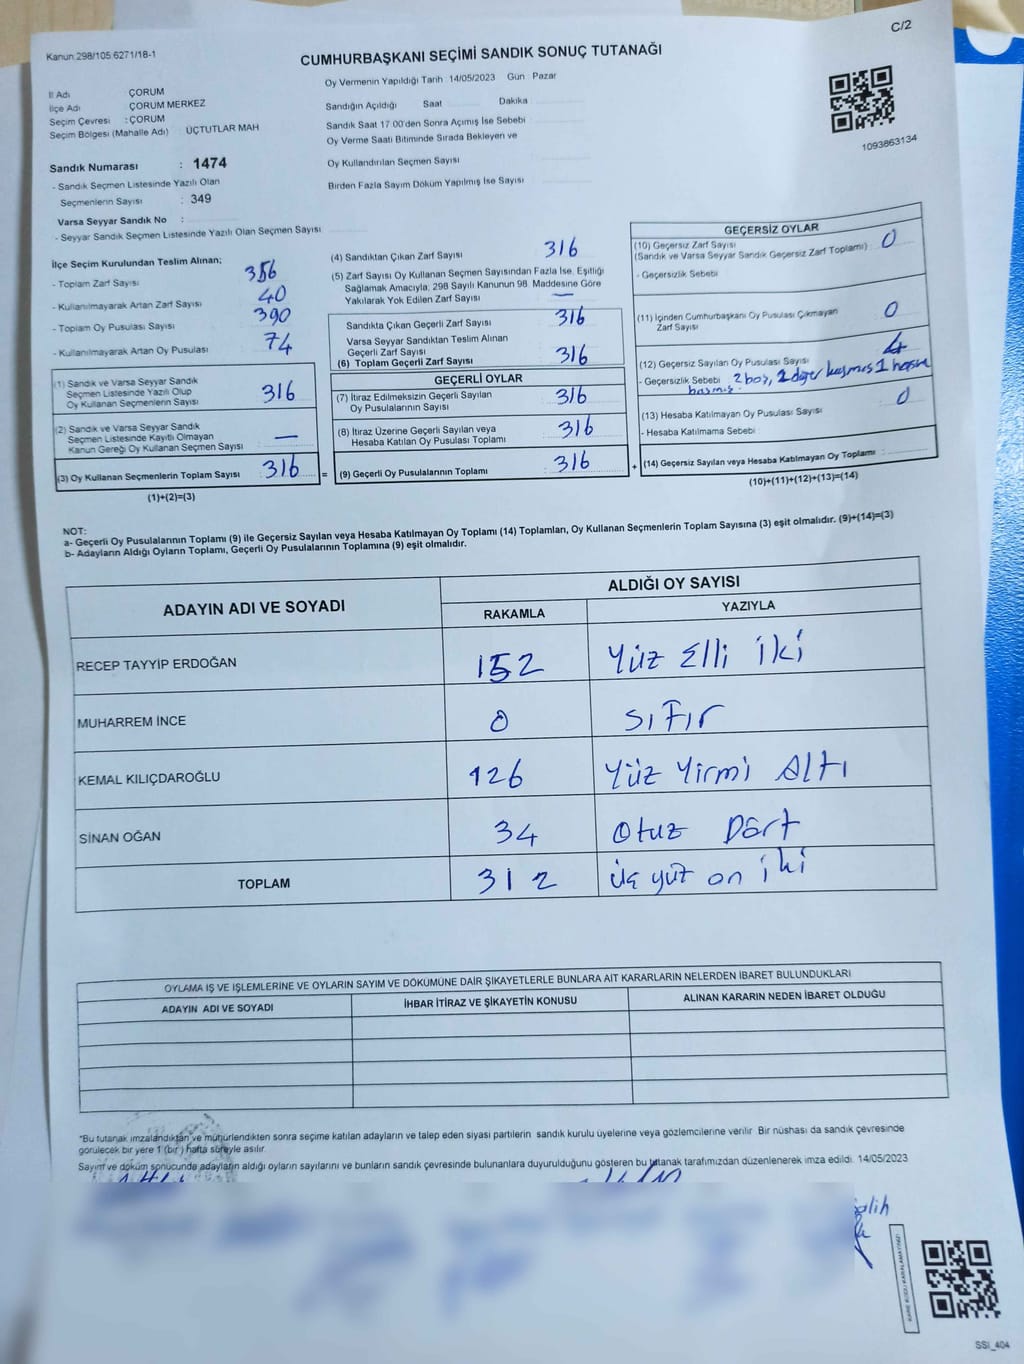 C/2
Kanun:298/105:6271/18-1
CUMHURBAŞKANI SEÇİMİ SANDIK SONUÇ TUTANAĞI
İl Adı ÇORUM
İlçe Adı ÇORUM MERKEZ
Seçim Çevresi : ÇORUM
Seçim Bölgesi (Mahalle Adı) ÜÇTUTLAR MAH
Sandık Numarası : 1474
- Sandık Seçmen Listesinde Yazılı Olan
Seçmenlerin Sayısı : 349
Varsa Seyyar Sandık No :
- Seyyar Sandık Seçmen Listesinde Yazılı Olan Seçmen Sayısı
Oy Vermenin Yapıldığı Tarih 14/05/2023 Gün : Pazar
Sandığın Açıldığı Saat Dakika
Sandık Saat 17.00'den Sonra Açımış İse Sebebi
Oy Verme Saati Bitiminde Sırada Bekleyen ve
Oy Kullandırılan Seçmen Sayısı
Birden Fazla Sayım Döküm Yapılmış İse Sayısı
1093863134
İlçe Seçim Kurulundan Teslim Alınan;
- Toplam Zarf Sayısı 356
- Kullanılmayarak Artan Zarf Sayısı 40
- Toplam Oy Pusulası Sayısı 390
- Kullanılmayarak Artan Oy Pusulası 74
(1) Sandık ve Varsa Seyyar Sandık
Seçmen Listesinde Yazılı Olup
Oy Kullanan Seçmenlerin Sayısı 316
(2) Sandık ve Varsa Seyyar Sandık
Seçmen Listesinde Kayıtlı Olmayan
Kanun Gereği Oy Kullanan Seçmen Sayısı —
(3) Oy Kullanan Seçmenlerin Toplam Sayısı : 316 =
(1)+(2)=(3)
(4) Sandıktan Çıkan Zarf Sayısı 316
(5) Zarf Sayısı Oy Kullanan Seçmen Sayısından Fazla İse, Eşitliği
Sağlamak Amacıyla; 298 Sayılı Kanunun 98. Maddesine Göre
Yakılarak Yok Edilen Zarf Sayısı —
Sandıkta Çıkan Geçerli Zarf Sayısı 316
Varsa Seyyar Sandıktan Teslim Alınan
Geçerli Zarf Sayısı
(6) Toplam Geçerli Zarf Sayısı 316
GEÇERLİ OYLAR
(7) İtiraz Edilmeksizin Geçerli Sayılan
Oy Pusulalarının Sayısı 316
(8) İtiraz Üzerine Geçerli Sayılan veya
Hesaba Katılan Oy Pusulası Toplamı 316
(9) Geçerli Oy Pusulalarının Toplamı : 316 +
GEÇERSİZ OYLAR
(10) Geçersiz Zarf Sayısı 0
(Sandık ve Varsa Seyyar Sandık Geçersiz Zarf Toplamı)
- Geçersizlik Sebebi
(11) İçinden Cumhurbaşkanı Oy Pusulası Çıkmayan
Zarf Sayısı 0
(12) Geçersiz Sayılan Oy Pusulası Sayısı 4
- Geçersizlik Sebebi 2 boş, 1 diğer 1
basmış.
(13) Hesaba Katılmayan Oy Pusulası Sayısı 0
- Hesaba Katılmama Sebebi
(14) Geçersiz Sayılan veya Hesaba Katılmayan Oy Toplamı :
(10)+(11)+(12)+(13)=(14)
NOT:
a- Geçerli Oy Pusulalarının Toplamı (9) ile Geçersiz Sayılan veya Hesaba Katılmayan Oy Toplamı (14) Toplamları, Oy Kullanan Seçmenlerin Toplam Sayısına (3) eşit olmalıdır. (9)+(14)=(3)
b- Adayların Aldığı Oyların Toplamı, Geçerli Oy Pusulalarının Toplamına (9) eşit olmalıdır.
ADAYIN ADI VE SOYADI ALDIĞI OY SAYISI
RAKAMLA YAZIYLA
RECEP TAYYİP ERDOĞAN 152 Yüz Elli İki
MUHARREM İNCE 0 SıFır
KEMAL KILIÇDAROĞLU 126 Yüz Yirmi Altı
SİNAN OĞAN 34 Otuz Dört
TOPLAM 312 üç yüz on iki
OYLAMA İŞ VE İŞLEMLERİNE VE OYLARIN SAYIM VE DÖKÜMÜNE DAİR ŞİKAYETLERLE BUNLARA AİT KARARLARIN NELERDEN İBARET BULUNDUKLARI
ADAYIN ADI VE SOYADI İHBAR İTİRAZ VE ŞİKAYETİN KONUSU ALINAN KARARIN NEDEN İBARET OLDUĞU
*Bu tutanak imzalandıktan ve mühürlendikten sonra seçime katılan adayların ve talep eden siyasi partilerin sandık kurulu üyelerine veya gözlemcilerine verilir. Bir nüshası da sandık çevresinde
görülecek bir yere 1 (bir) hafta süreyle asılır.
Sayım ve döküm sonucunda adayların aldığı oyların sayılarını ve bunların sandık çevresinde bulunanlara duyurulduğunu gösteren bu tutanak tarafımızdan düzenlenerek imza edildi. 14/05/2023
KARE KODU KARALAMAYINIZ!
SSİ_404